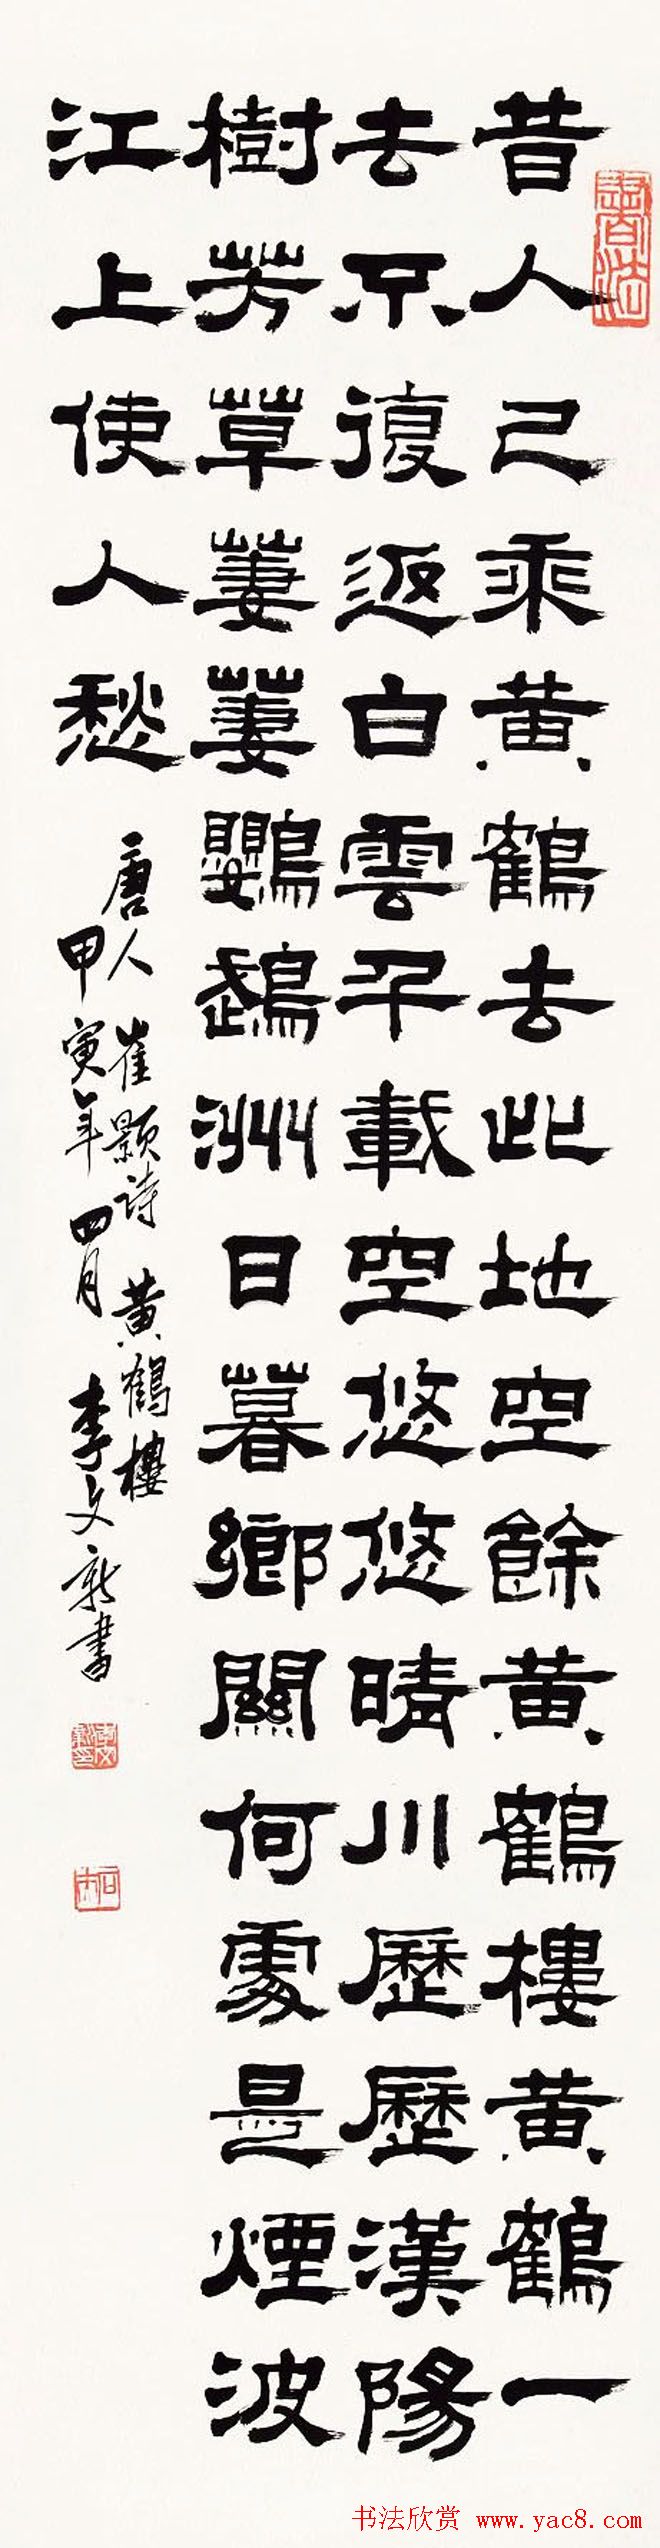 昔人已乘黄鶴去此地空餘黄鶴樓黄鶴一
去不復返白雲千載空悠悠晴川歷歷漢陽
樹芳草萋萋鸚鵡洲日暮鄉關何處是煙波
江上使人愁
唐人崔顥詩黄鶴樓
甲寅年四月李文新書
书法欣赏 www.yac8.com